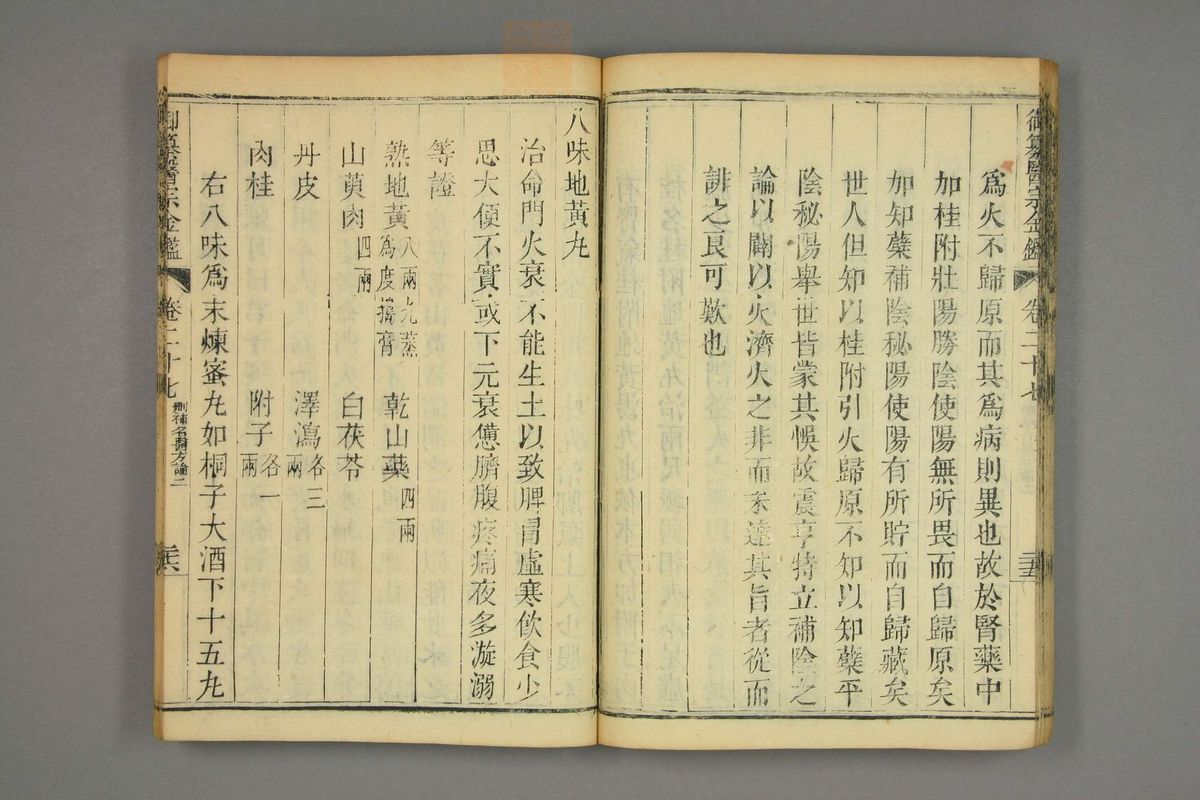 御纂醫宗金鑑 卷二十七 三十五
爲火不歸原而其爲病則異也故於腎藥中
加桂附壯陽勝陰使陽無所畏而自歸原矣
加知蘗補陰秘陽使陽有所貯而自歸藏矣
世人但知以桂附引火歸原不知以知蘗平
陰秘陽舉世皆蒙其悞故震亨特立補陰之
論以闢以火濟火之非而未達其旨者從而
誹之良可歎也
八味地黃丸
治命門火衰不能生土以致脾胃虛寒飲食少
思大便不實或下元衰憊臍腹疼痛夜多漩溺
等證
熟地黃 八兩九蒸爲度搗膏 乾山藥 四兩
山萸肉 四兩 白茯苓
丹皮 澤瀉 各三兩
肉桂 附子 各一兩
右八味爲末煉蜜丸如桐子大酒下十五丸
御纂醫宗金鑑 卷二十七 刪補名醫方論二 三十六